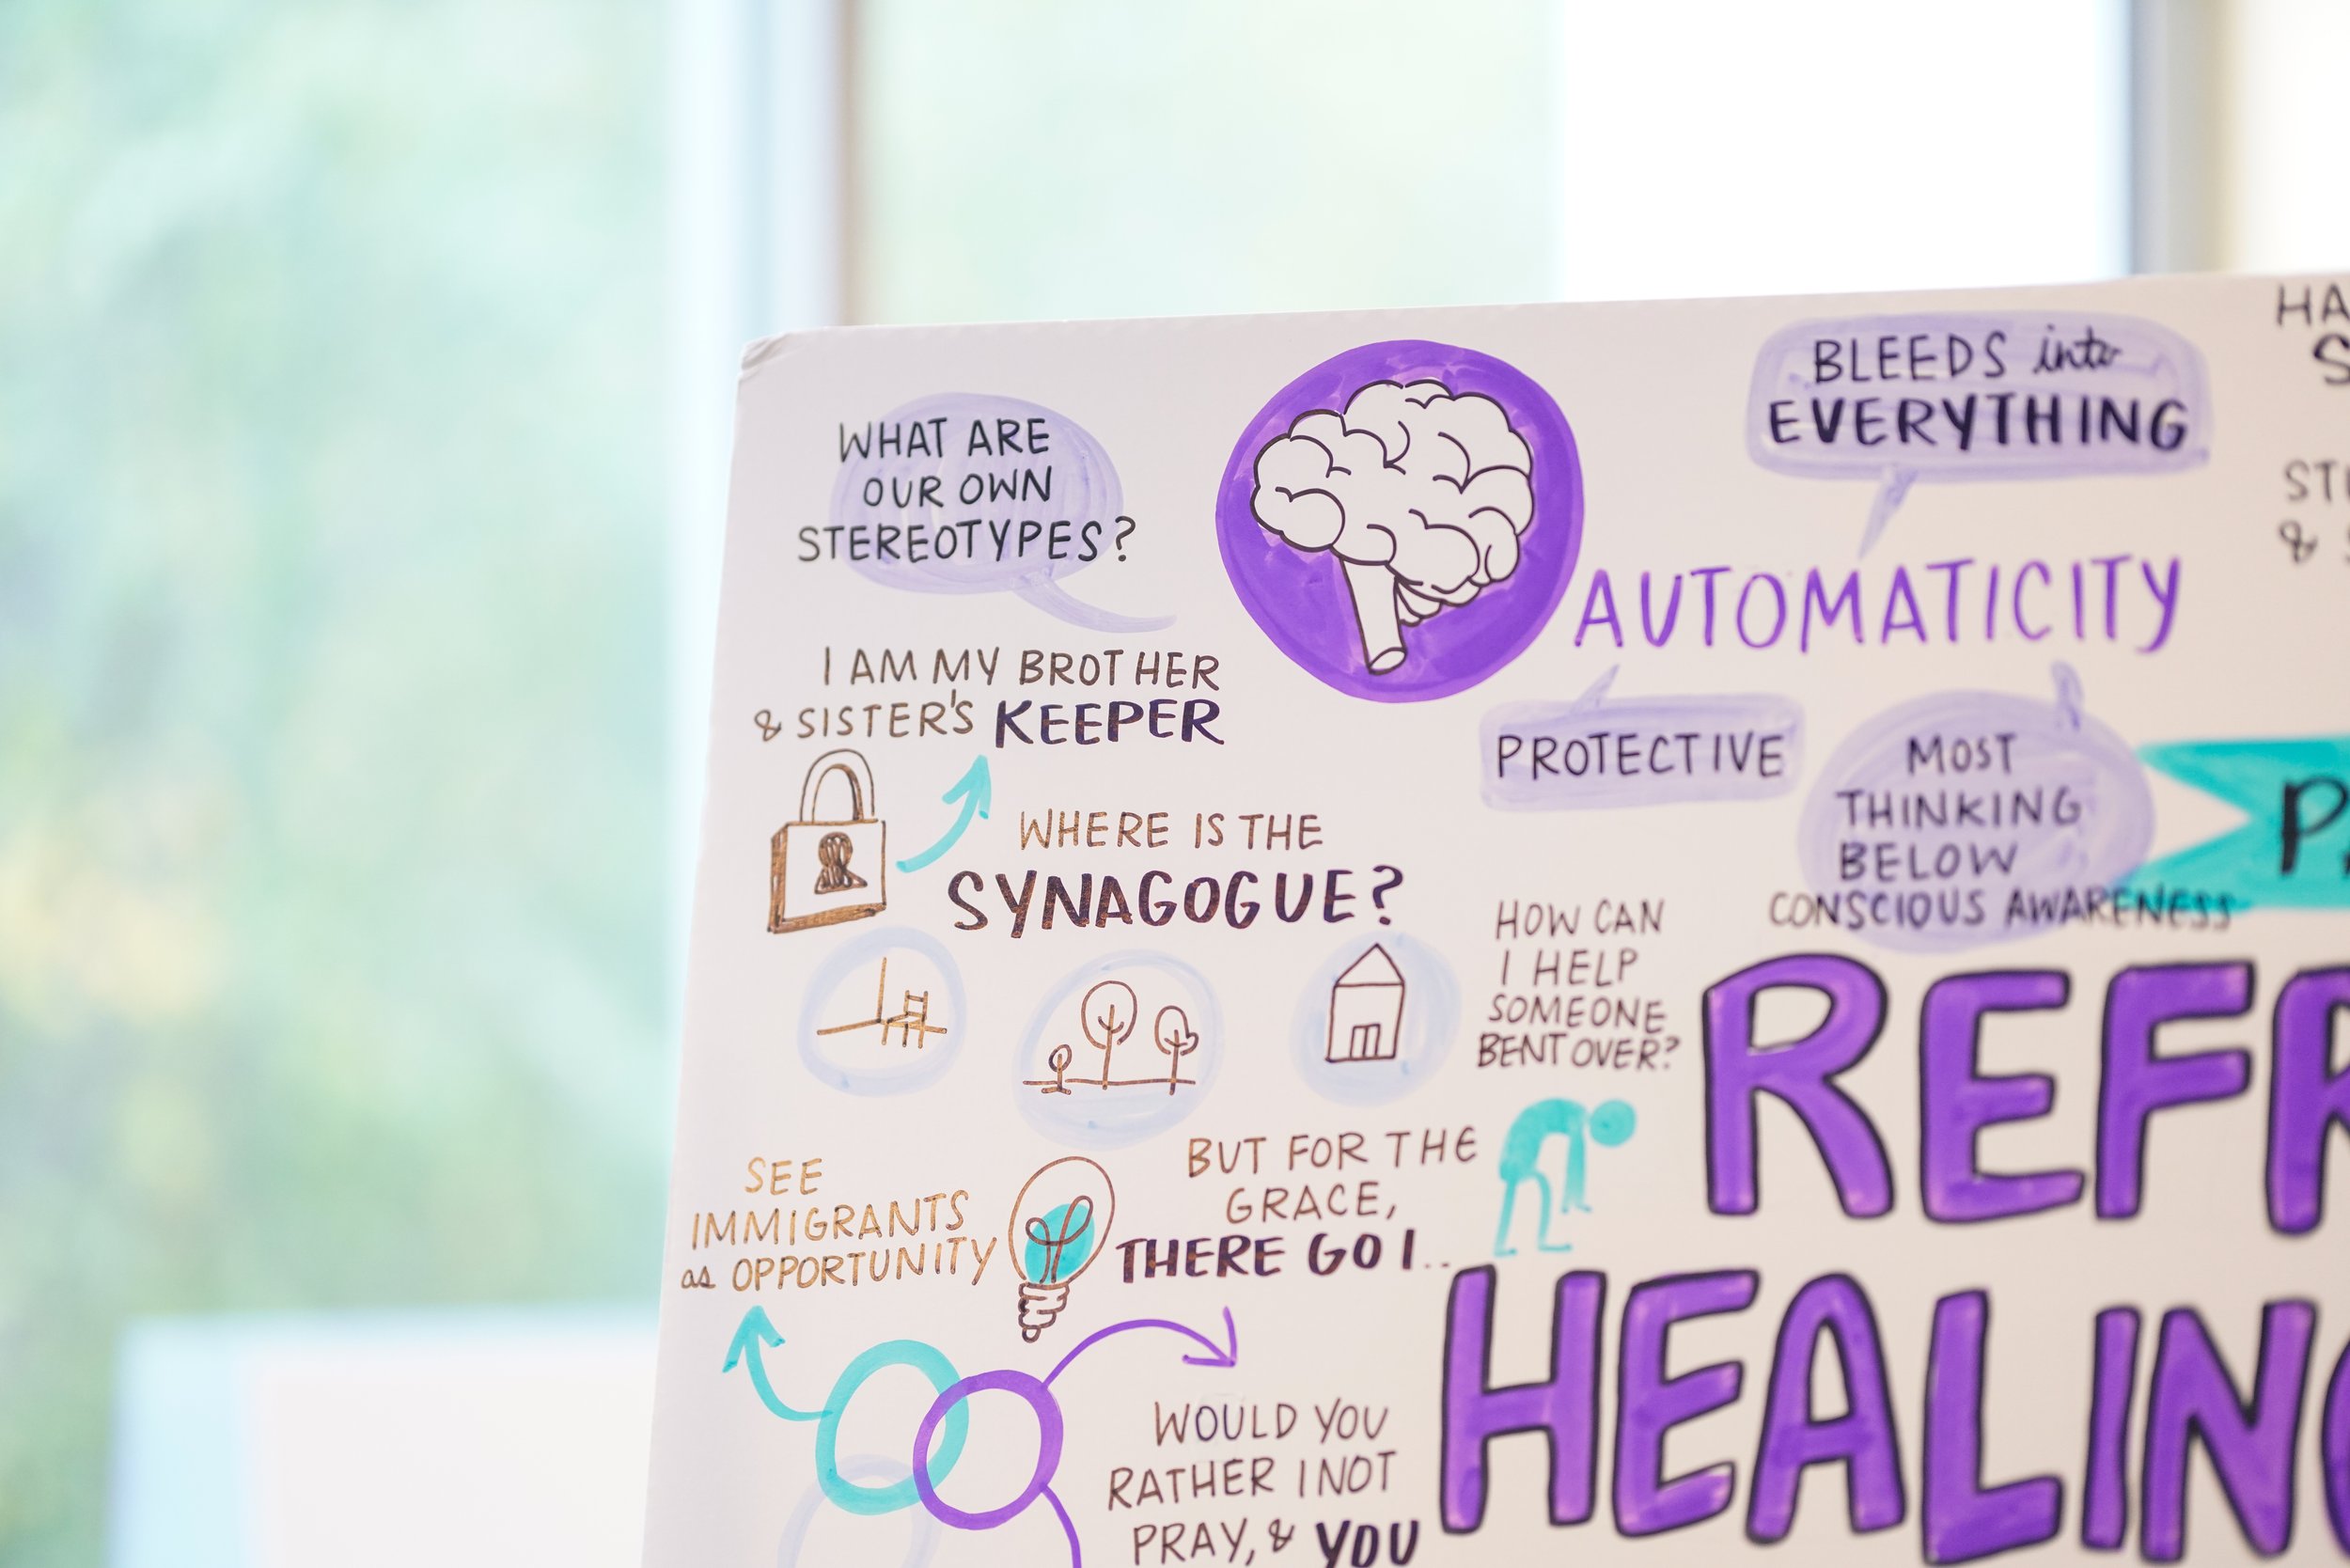 WHAT ARE
OUR OWN
STEREOTYPES?
BLEEDS into
EVERYTHING
AUTOMATICITY
PROTECTIVE
MOST
THINKING
BELOW
CONSCIOUS AWARENESS
I AM MY BROTHER
& SISTER'S KEEPER
WHERE IS THE
SYNAGOGUE?
HOW CAN
I HELP
SOMEONE
BENT OVER?
SEE
IMMIGRANTS
as OPPORTUNITY
BUT FOR THE
GRACE,
THERE GO I..
WOULD YOU
RATHER I NOT
PRAY, & YOU
HA
S
STE
&
P
REFR
HEALING